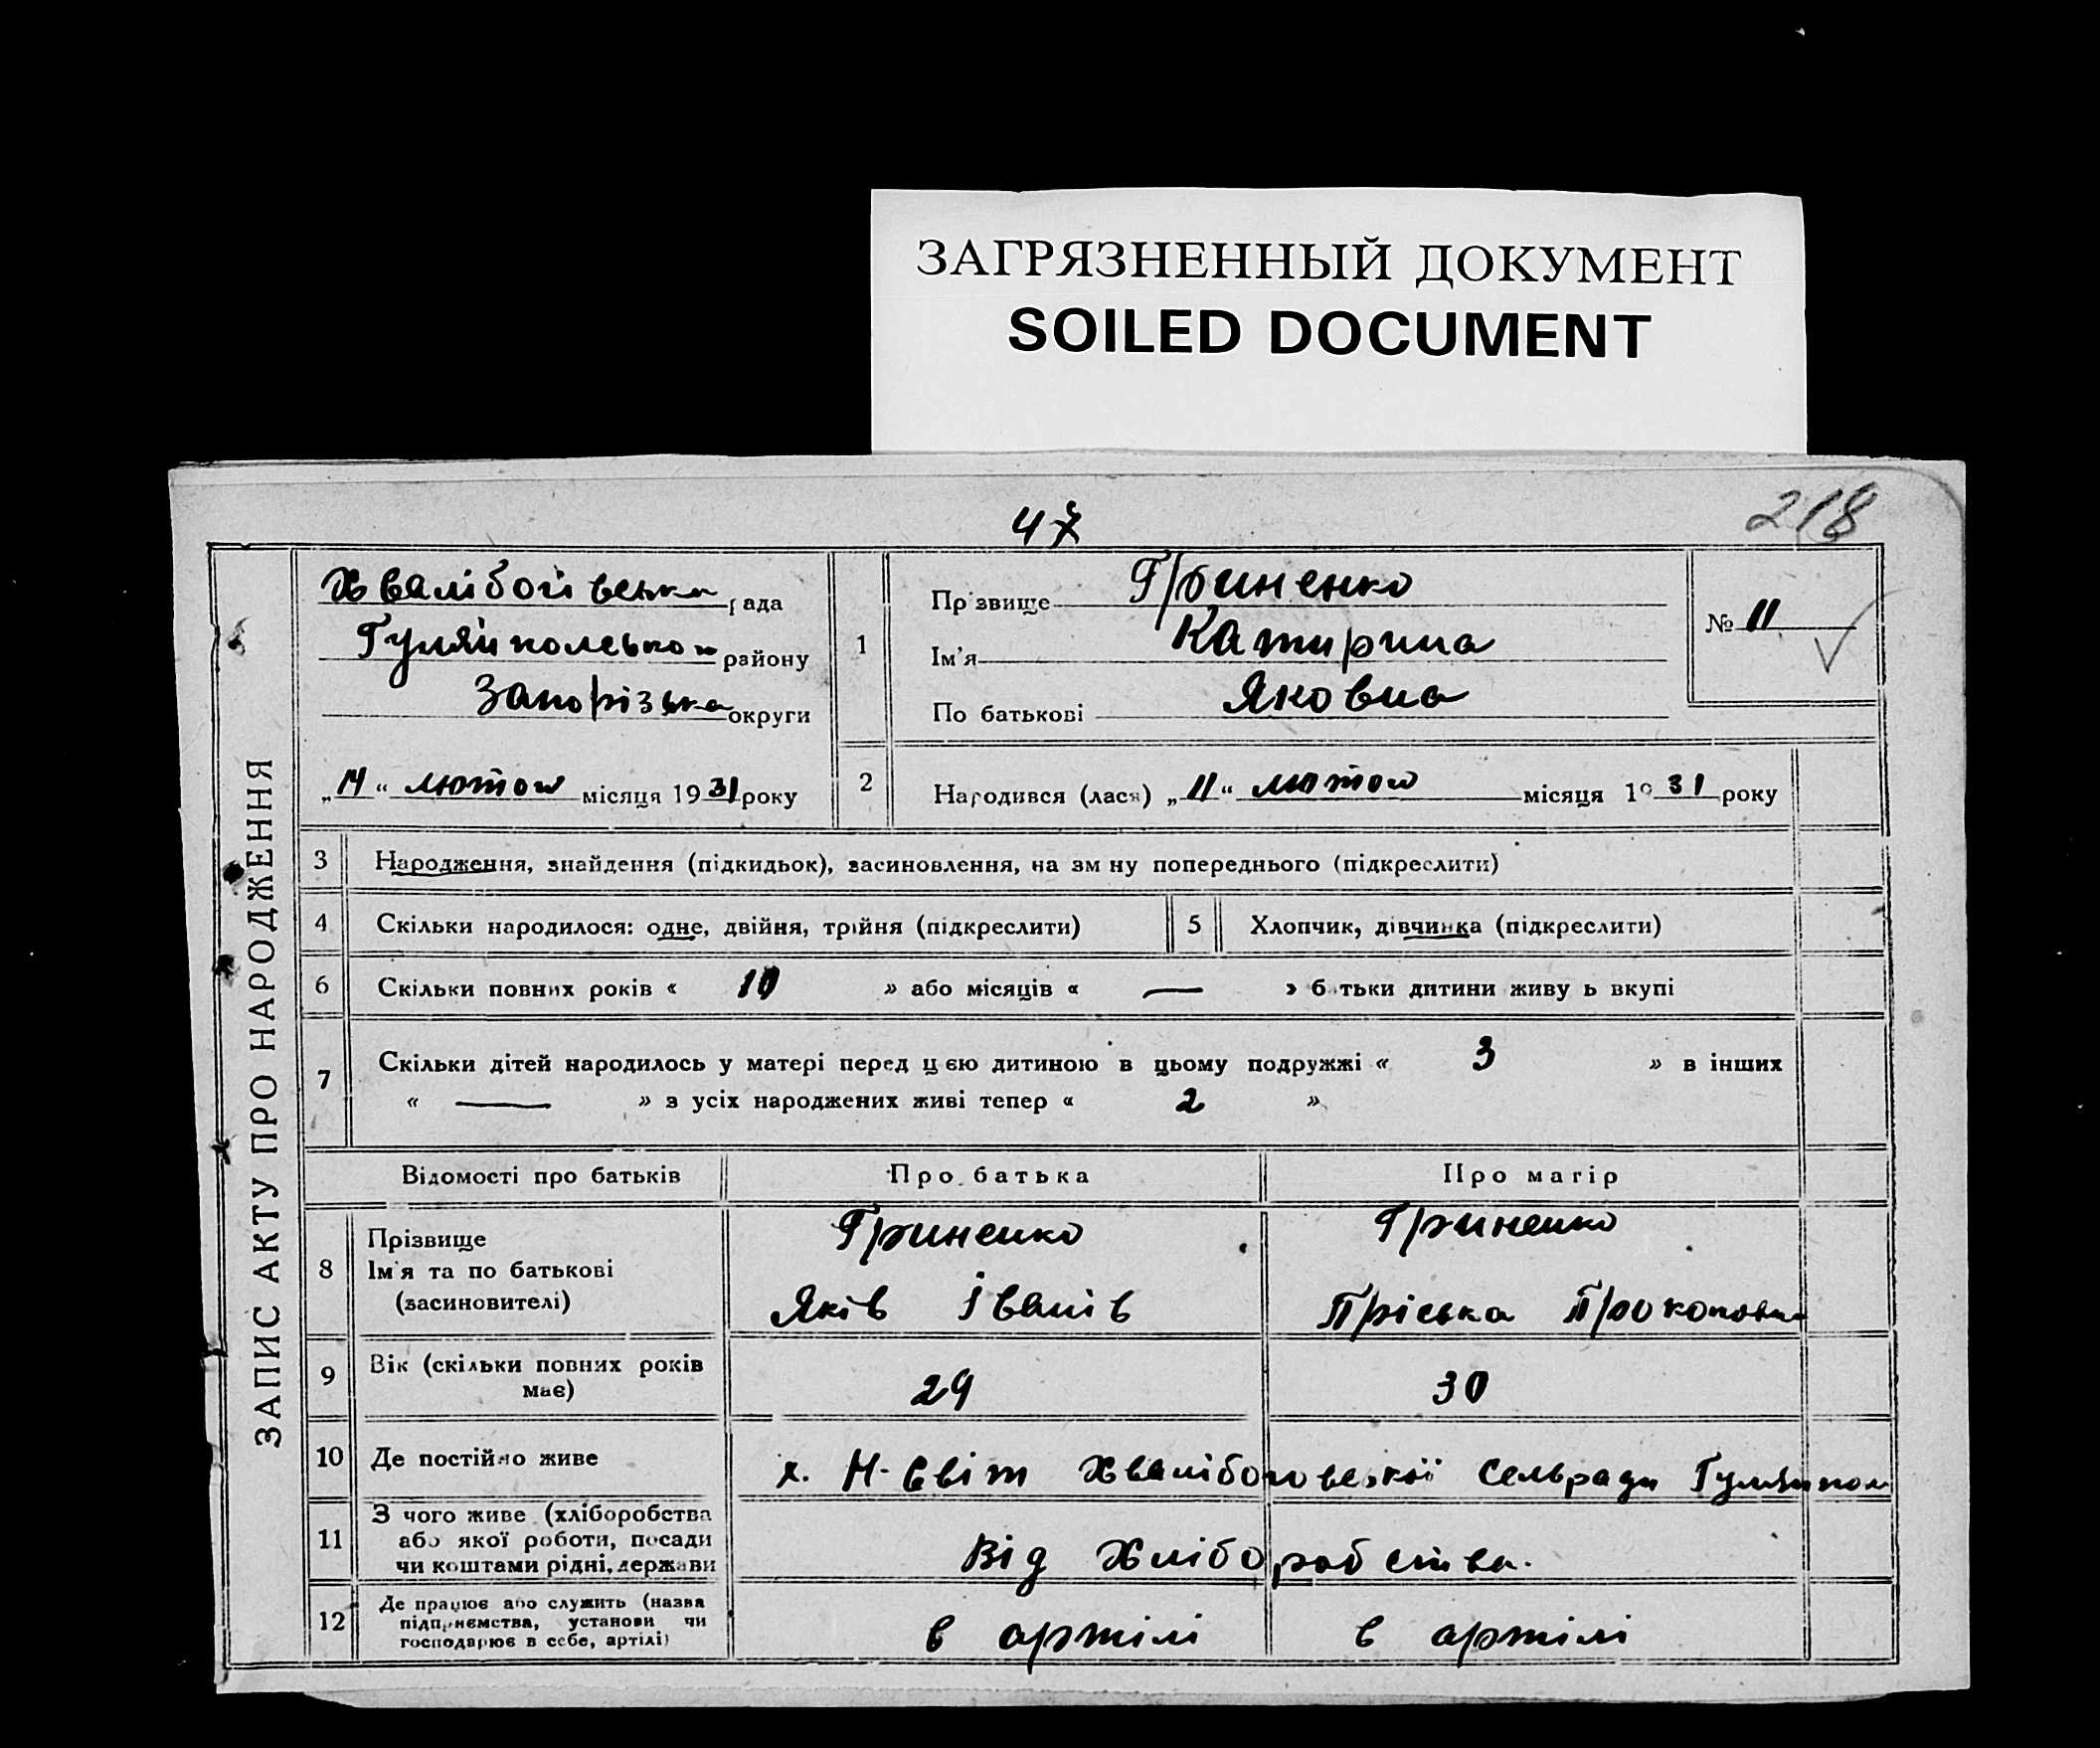 ЗАГРЯЗНЕННЫЙ ДОКУМЕНТ
SOILED DOCUMENT
218
47
ЗАПИС АКТУ ПРО НАРОДЖЕННЯ
Хвалібоівська рада
Гуляйпольського району
Запорізька округи
„14“ лютого місяця 1931 року
1
Прізвище Гриненко
Ім'я Катирина
По батькові Яковна
№ 11
2 Народився (лася) „11“ лютого місяця 1931 року
3 Народження, знайдення (підкидьок), засиновлення, на зміну попереднього (підкреслити)
4 Скільки народилося: одне, двійня, трійня (підкреслити) 5 Хлопчик, дівчинка (підкреслити)
6 Скільки повних років « 10 » або місяців « — » батьки дитини живуть вкупі
7 Скільки дітей народилось у матері перед цією дитиною в цьому подружжі « 3 » в інших
« — » з усіх народжених живі тепер « 2 »
Відомості про батьків Про батька Про матір
8 Прізвище
Ім'я та по батькові
(засиновителі)
Гриненко
Яків Іванів
Гриненко
Пріська Прокоповна
9 Вік (скільки повних років
має)
29 30
10 Де постійно живе х. Н-Світ Хвалібоговської Сельради Гуляйпол
11 З чого живе (хліборобства
або якої роботи, посади
чи коштами рідні, держави
Від Хліборобства.
12 Де працює або служить (назва
підприємства, установи чи
господарює в себе, артілі)
в артілі в артілі